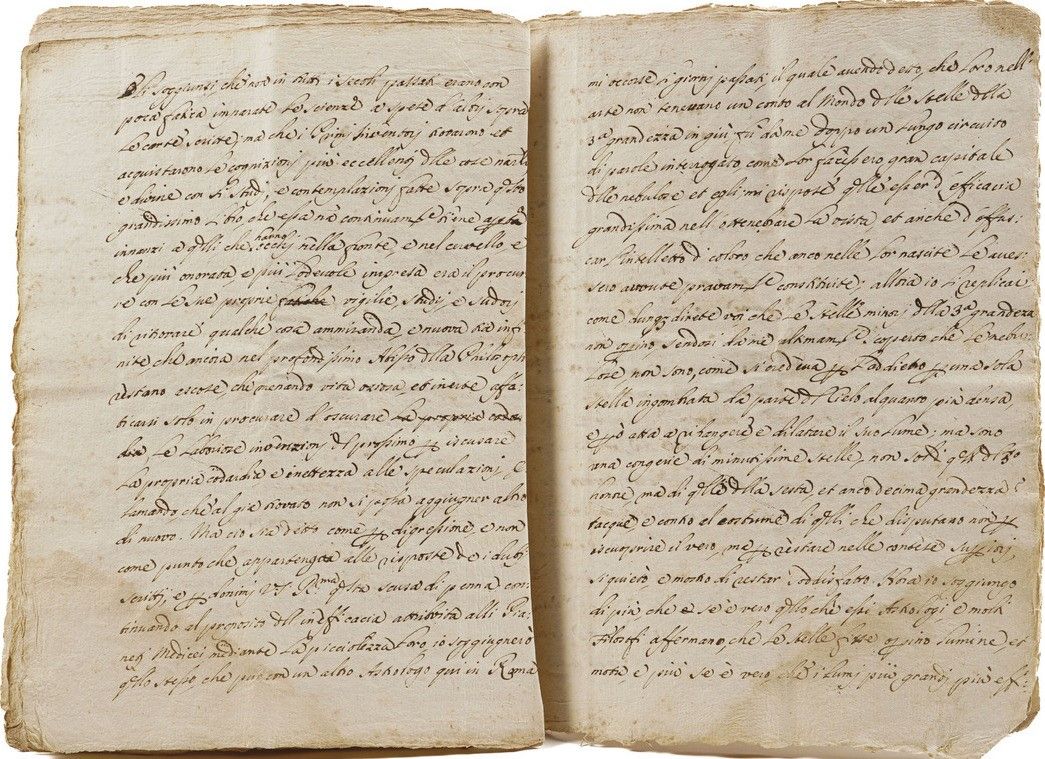 gli soggiunsi che non in tutti i secoli passati erano con
poca fatica imparate le scienze e spese a l'altrui sopra
le carte scritte; ma che i Primi Inventorj trovarono et
acquistarono le cognizionj più eccellentj dlle cose
e divine con gli studj, e contemplazionj fatte sopra qsto
grandissimo libro che essa nã continuamte tiene aperto
innanzi a qlli che hanno occhj nella fronte, e nel cervello, e
che più onorata, e più lodevole impresa era il procura
re con le sue proprie fatiche vigilie studj, e sudorj
di ritrovare qualche cosa ammiranda, e nuova tra infi
nite che ancora nel profondissimo Abisso dlla Philosoph
restano ascose, che menando vita oziosa, et inerte affa-
ticarsi solo in procurare d'oscurare la propria codar
dia le laboriose invenzionj dl prossimo p iscusare
la propria codardia e inettezza alle speculazionj, e
lamando, che al già trovato non si possa aggiugner altro
di nuovo. Ma ciò sia detto come p digressione, e non
come punto che appartenga alle risposte de i dubj
scritti, e V.S. Rma qsta scusa di penna con-
tinuando al proposito dll'inefficacia attribuita alli Pia-
netj Medicei mediante la picciolezza loro, io soggiugnerò
qllo stesso, che pur con un altro Astrologo qui in Roma
mi occorse i giorni passati, il quale avendo detto, che loro nell'
arte non tenevano un conto al Mondo dlle stelle dlla
3a grandezza in giù, fu da me doppo un lungo circuito
di parole interrogato come lor facessero gran capitale
dlle nebulose et egli mi rispose qlle esser d'efficacia
grandissima nell'ottenebrare la vista, et anche d'offus-
car l'intelletto d coloro che anco nelle lor nascite le aves-
sero avute pravamte constituite: allora io li replicai
come dunqz direte voi che le stelle minorj dlla 3a grandezza
non oprino, sendosi da me altimamte scoperto che le nebu-
lose non sono, come si credeva p l'addietro p una sola
stella ingombrata da parte dl Cielo alquanto più densa
e pò atta a rifrangere e dilatare il suo lume; ma sono
una congerie di minutissime stelle, non solo
ma di qlle dlla sesta et anco decima grandezza:
tacque e contro al costume di qlli che disputano non p
iscoprire il vero, ma p restare nelle contese superiorj,
si quietò e mostrò di restar soddisfatto Hora io soggiungo
di più che se è vero qllo che essi Astrologi e molti
Filosofi affermano, che le stelle tutte oprino lumine, et
motu, e più se è vero che i lumi più grandj più ef-